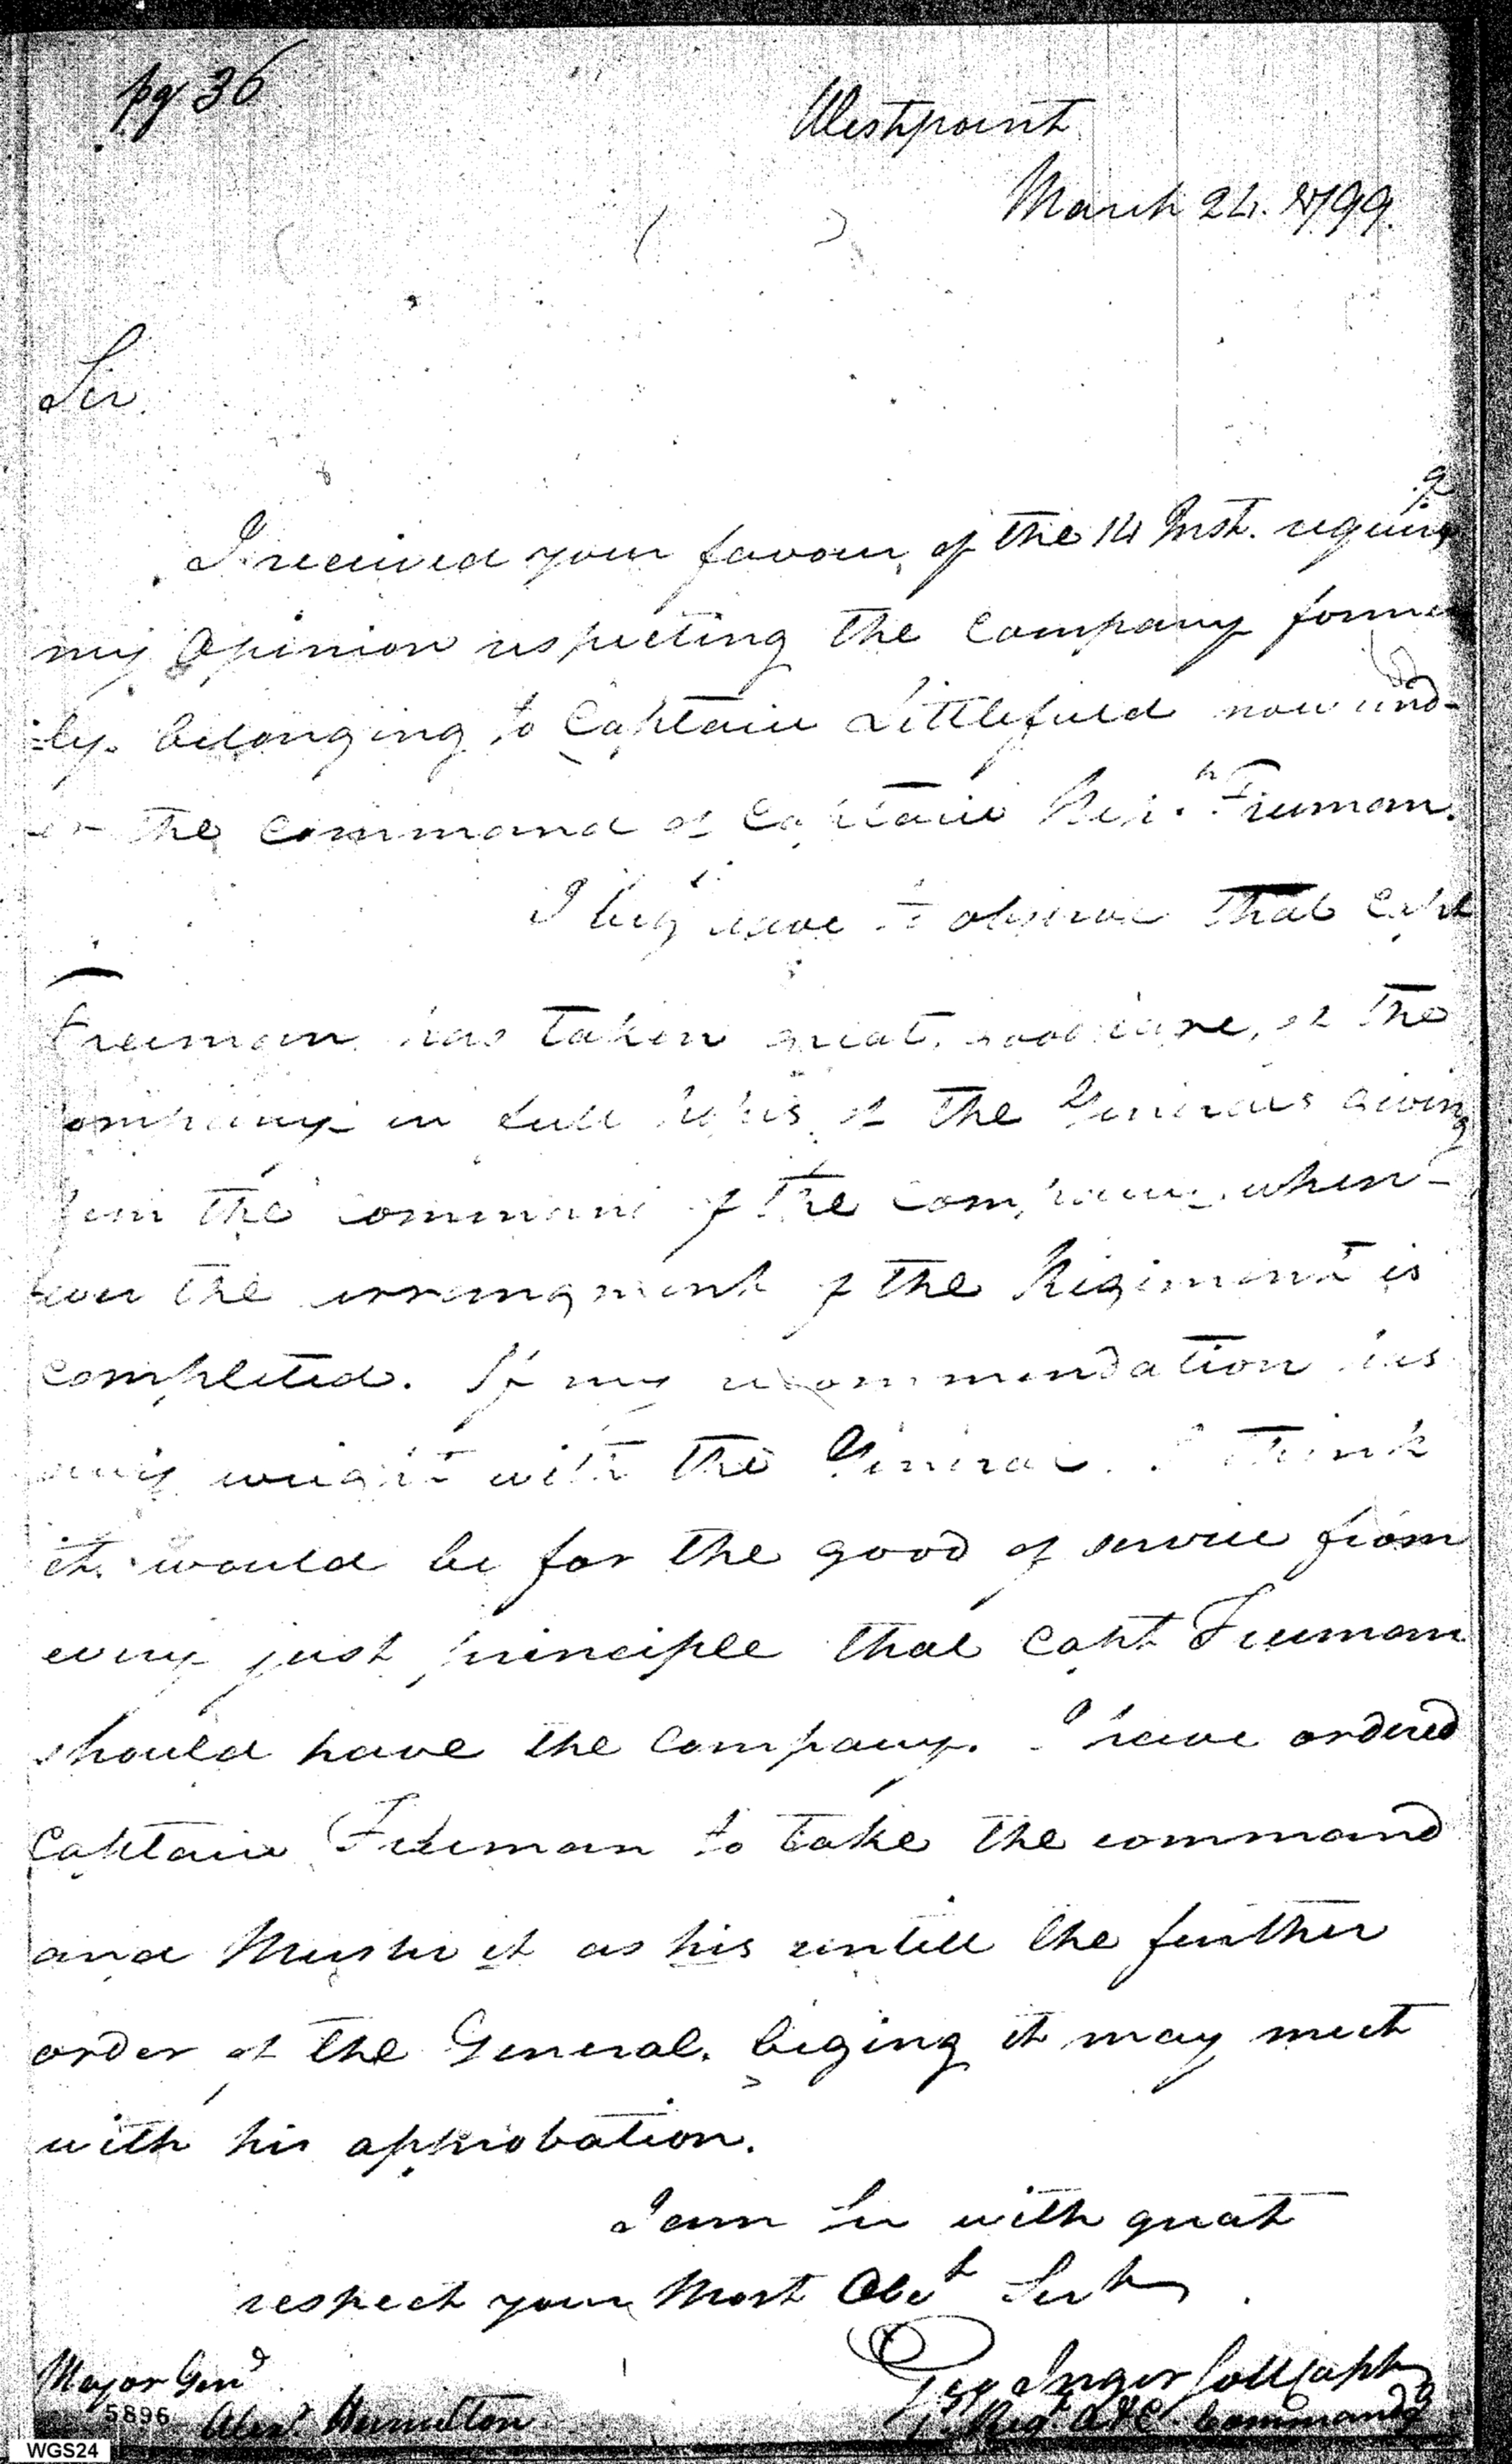 pg 36
Westpoint
March 24. 1799.
Sir
I received your favour of the 14 Inst. requirg
my Opinion respecting the Company former
=ly. belonging to Captain Littlefield now und-
er the command of Captain Freeman.
I beg leave to observe that Capt
Freeman has taken great, good care, of the
Company in full hopes of the Generals giving
him the command of the company when-
ever the arrangment of the Regiment is
completed. If my recommendation has
any weight with the General. I think
it. would be for the good of service from
every just principle that Capt Freeman
should have the Company. I have ordered
Captain Freeman to take the command
and Muster it as his untill the further
order of the General. beging it may meet
with his approbation.
I am Sir with great
respect your Most Obet Servt
Geo Ingersoll Capt
1t. Regt. A&E. Commandg
Major Genl
5896 Alexr. Hamilton
WGS24